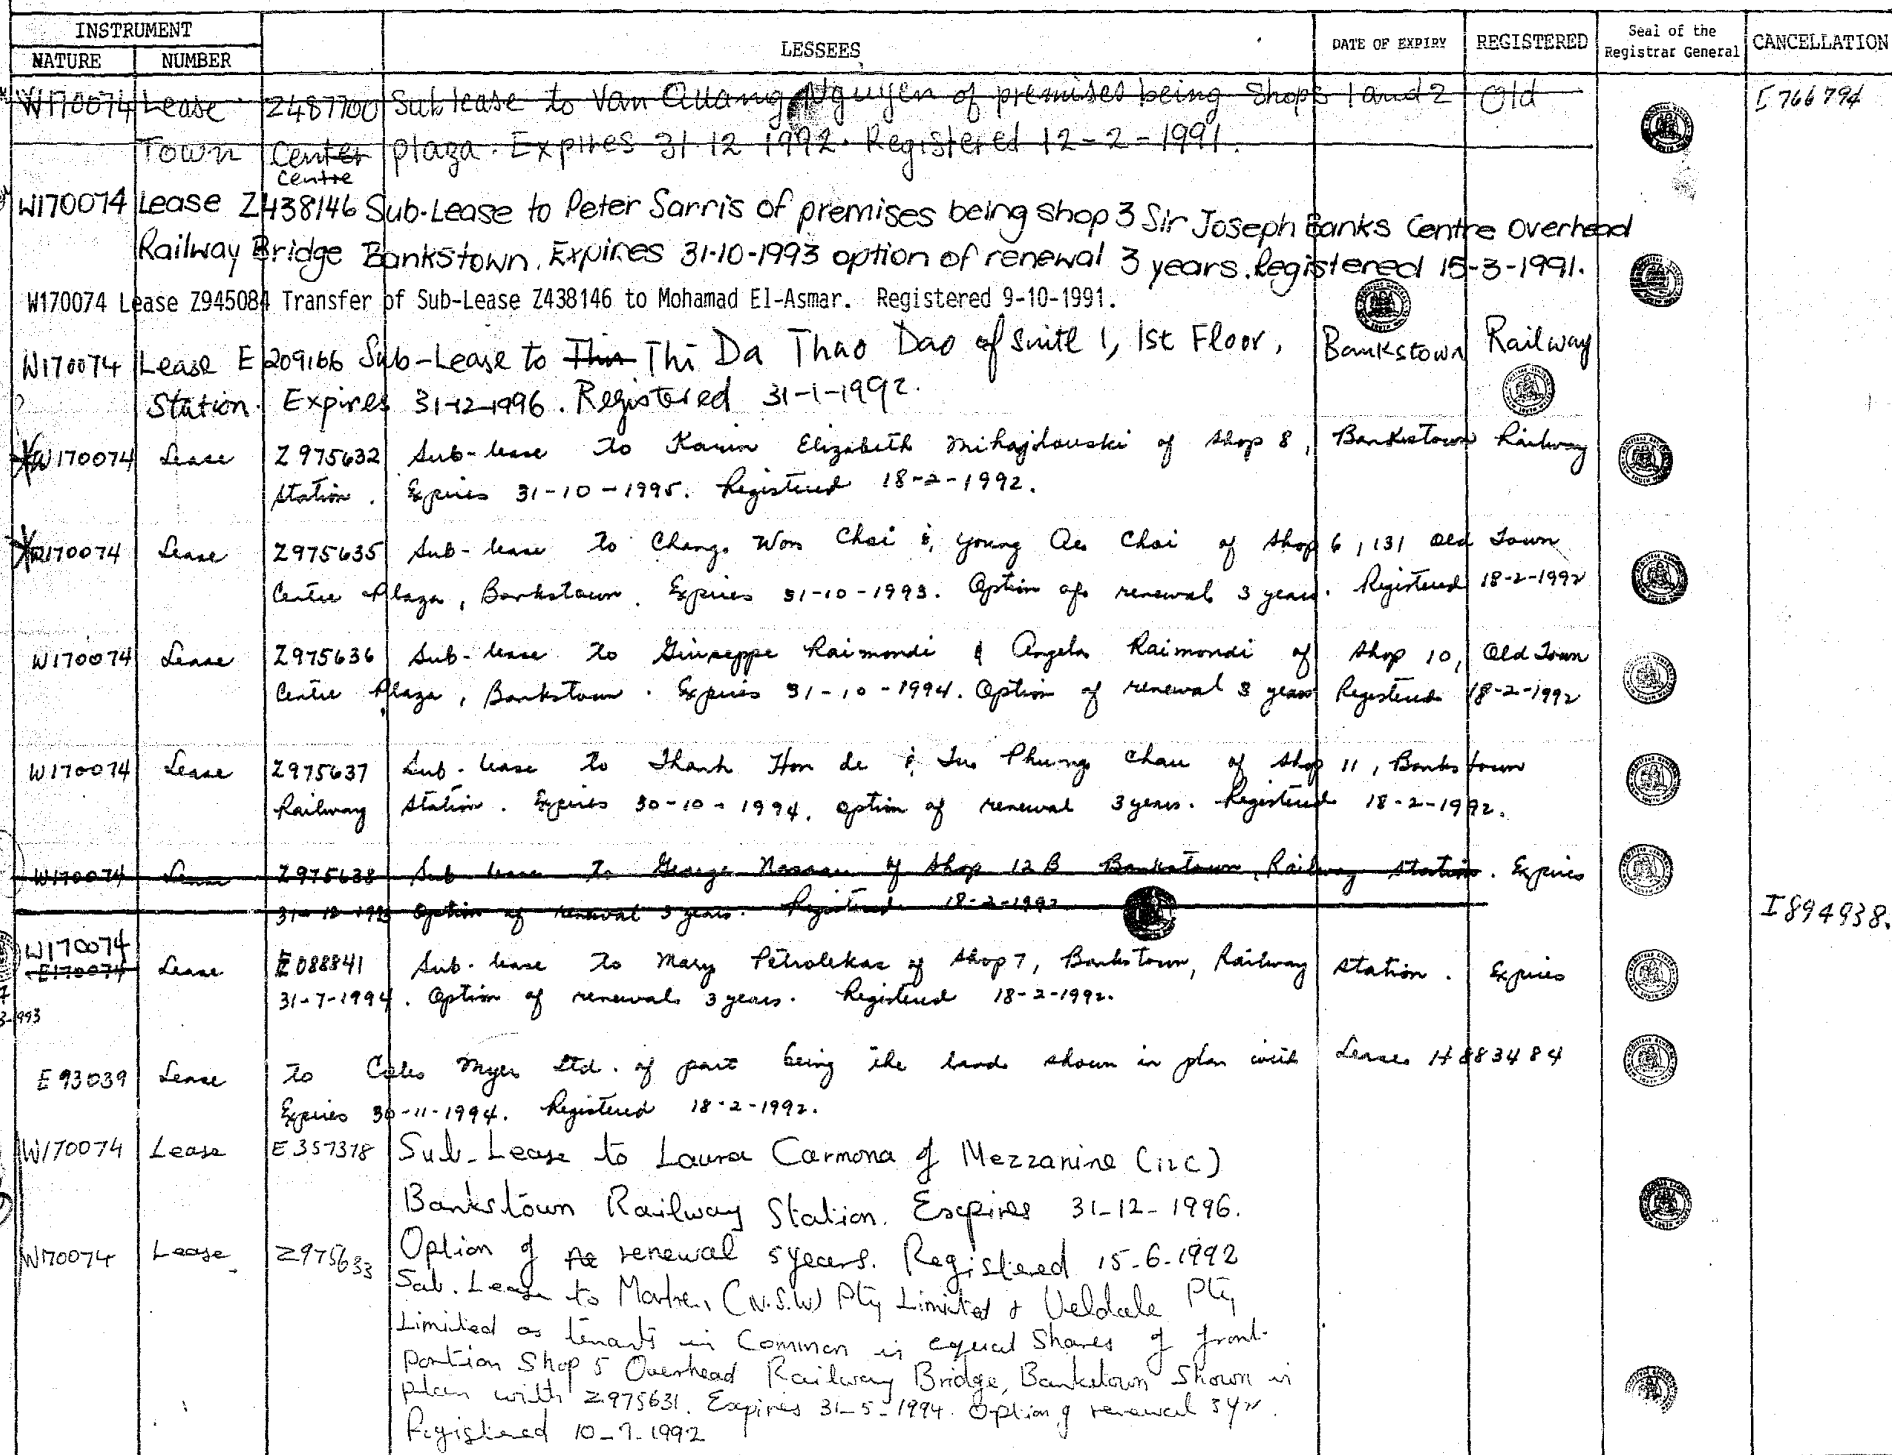 INSTRUMENT
NATURE NUMBER LESSEES DATE OF EXPIRY REGISTERED Seal of the Registrar General CANCELLATION
W170074 Lease Z487700 Sublease to Van Quang Nguyen of premises being Shops 1 and 2 Old I766794
Town Center plaza. Expires 31 12 1992. Registered 12-2-1991.
Centre
W170074 Lease Z438146 Sub-Lease to Peter Sarris of premises being shop 3 Sir Joseph Banks Centre Overhead
Railway Bridge Bankstown. Expires 31-10-1993 option of renewal 3 years. Registered 15-3-1991.
W170074 Lease Z945084 Transfer of Sub-Lease Z438146 to Mohamad El-Asmar. Registered 9-10-1991.
W170074 Lease E209166 Sub-Lease to Thi Da Thao Dao of Suite 1, 1st Floor, Bankstown Railway
Station. Expires 31-12-1996. Registered 31-1-1992.
W170074 Lease Z975632 Sub-lease to Karin Elizabeth Mihajlouski of Shop 8, Bankstown Railway
Station. Expires 31-10-1995. Registered 18-2-1992.
W170074 Lease Z975635 Sub-lease to Chang Won Choi & Young Ae Choi of Shop 6, 131 Old Town
Centre Plaza, Bankstown. Expires 31-10-1993. Option of renewal 3 years. Registered 18-2-1992
W170074 Lease Z975636 Sub-lease to Giuseppe Raimondi & Angela Raimondi of Shop 10, Old Town
Centre Plaza, Bankstown. Expires 31-10-1994. Option of renewal 3 years Registered 18-2-1992
W170074 Lease Z975637 Sub-lease to Thanh Hon de & Tu Phung Chau of Shop 11, Bankstown
Railway Station. Expires 30-10-1994. Option of renewal 3 years. Registered 18-2-1992.
W170074 Lease Z975638 Sub lease to George Nassau of Shop 12B Bankstown, Railway Station. Expires
31-12-1993 Option of renewal 3 years. Registered 18-2-1992 I894938.
W170074
E170074 Lease E088841 Sub-lease to Mary Petrolekas of Shop 7, Bankstown, Railway Station. Expires
31-7-1994. Option of renewal 3 years. Registered 18-2-1992.
E93039 Lease to Coles Myer Ltd. of part being the land shown in plan with Lease H883484
Expires 30-11-1994. Registered 18-2-1992.
W170074 Lease E357378 Sub-Lease to Laura Carmona of Mezzanine (12C)
Bankstown Railway Station. Expires 31-12-1996.
Option of re renewal 5 years. Registered 15-6-1992
W170074 Lease Z975633
Sub. Lease to (N.S.W) Pty Limited & Veldale Pty
Limited as tenants in Common in equal Shares of front
portion Shop 5 Overhead Railway Bridge, Bankstown Shown in
plan with Z975631. Expires 31-5-1994. Option of renewal 3yr.
Registered 10-7-1992